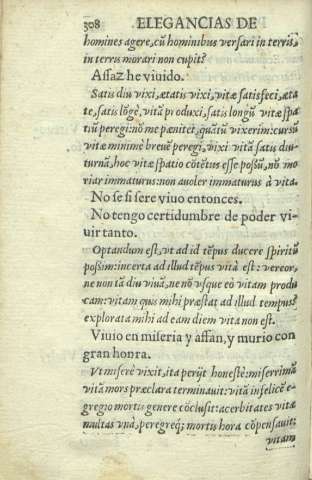 308 ELEGANCIAS DE
homines agere, cū hominibus versari in terris,
in terris morari non cupit?
Assaz he viuido.
Satis diu vixi, ætatis vixi, vitæ satisfeci, æta
te, satis lōgè, vitā produxi, satis longū vitæ spa
tiū peregi: nō me pænitet, quātū vixerim: cursū
vitæ minimè breuē peregi, vixi vitā satis diu-
turnā, hoc vitæ spatio cōtētus esse possū, nō mo
riar immaturus: non auolor immaturus à vita.
No se si sere viuo entonces.
No tengo certidumbre de poder vi-
uir tanto.
Optandum est, vt ad id tēpus ducere spiritū
possim: incerta ad illud tēpus vita est: vereor,
ne non tā diu viuā, ne nō vsque eò vitam produ
cam: vitam quis mihi præstat ad illud tempus?
explorata mihi ad eam diem vita non est.
Viuio en miseria y affan, y murio con
gran honra.
Vt miserè vixit, ita perijt honestè: miserrimā
vitā mors præclara terminauit: vitā infelicē e-
gregio mortis genere cōclusit: acerbitates vitæ
multas vnà, peregreq; mortis hora cōpensauit:
vitam